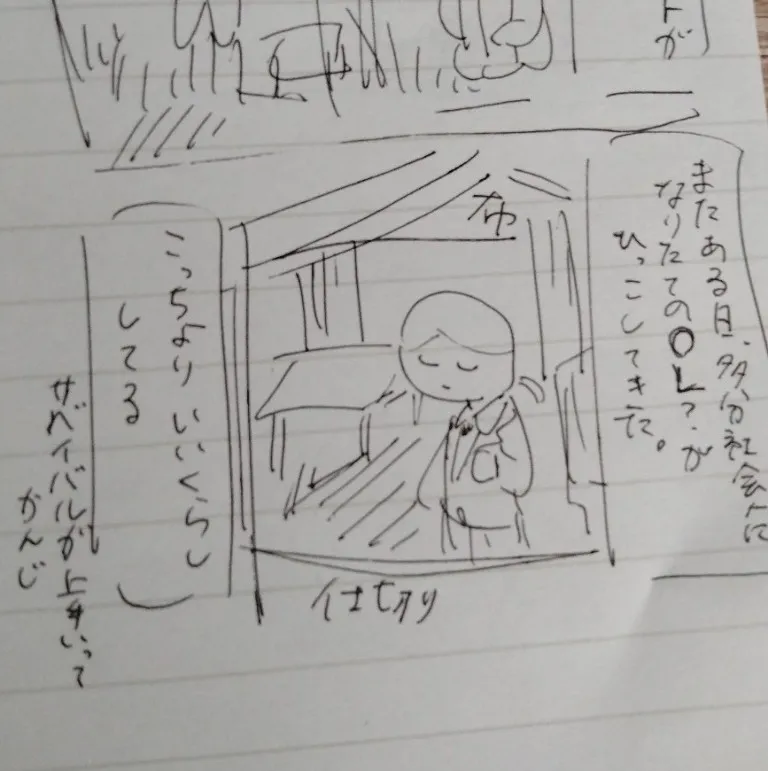 トが
またある日、多分社会人に
なりたてのOL?が
ひっこしてきた。
布
仕切り
こっちよりいいくらし
してる
サバイバルが上手いって
かんじ